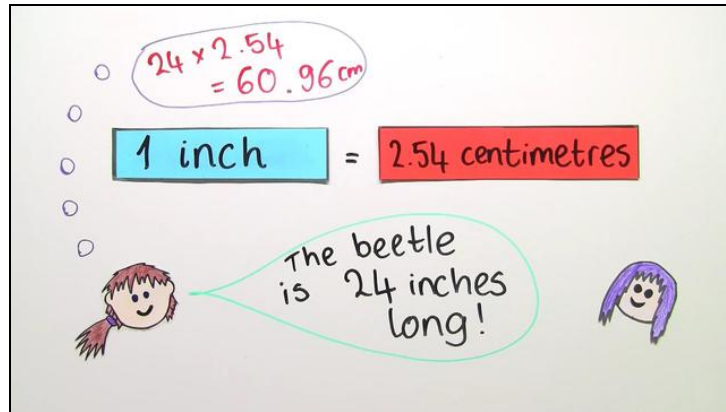 24 × 2.54
= 60.96 cm
1 inch = 2.54 centimetres
The beetle
is 24 inches
long!